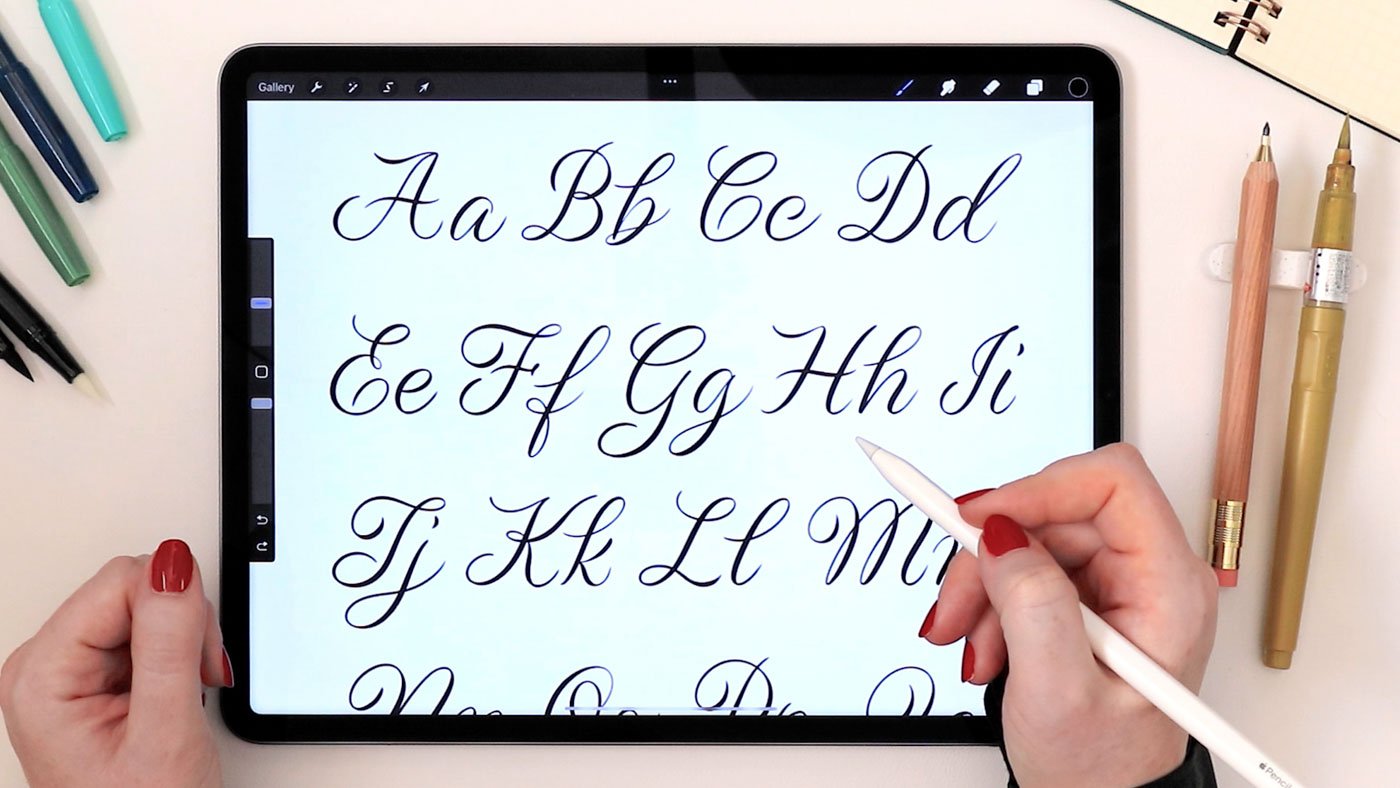 Gallery
Aa Bb Cc Dd
Ee Ff Gg Hh Ii
Jj Kk Ll M
Pencil